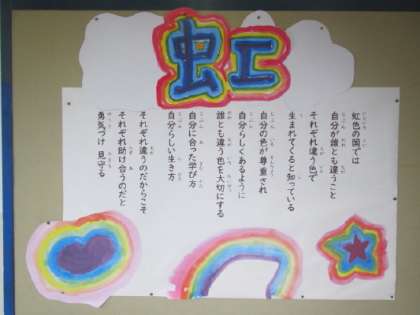 虹
虹色の国では
自分が誰とも違うこと
それぞれ違う色で
生まれてくると知っている
自分の色が尊重され
自分らしくあるように
誰とも違う色を大切にする
自分に合った学び方
自分らしい生き方
それぞれ違うのだからこそ
それぞれ助け合うのだと
勇気づけ 見守る